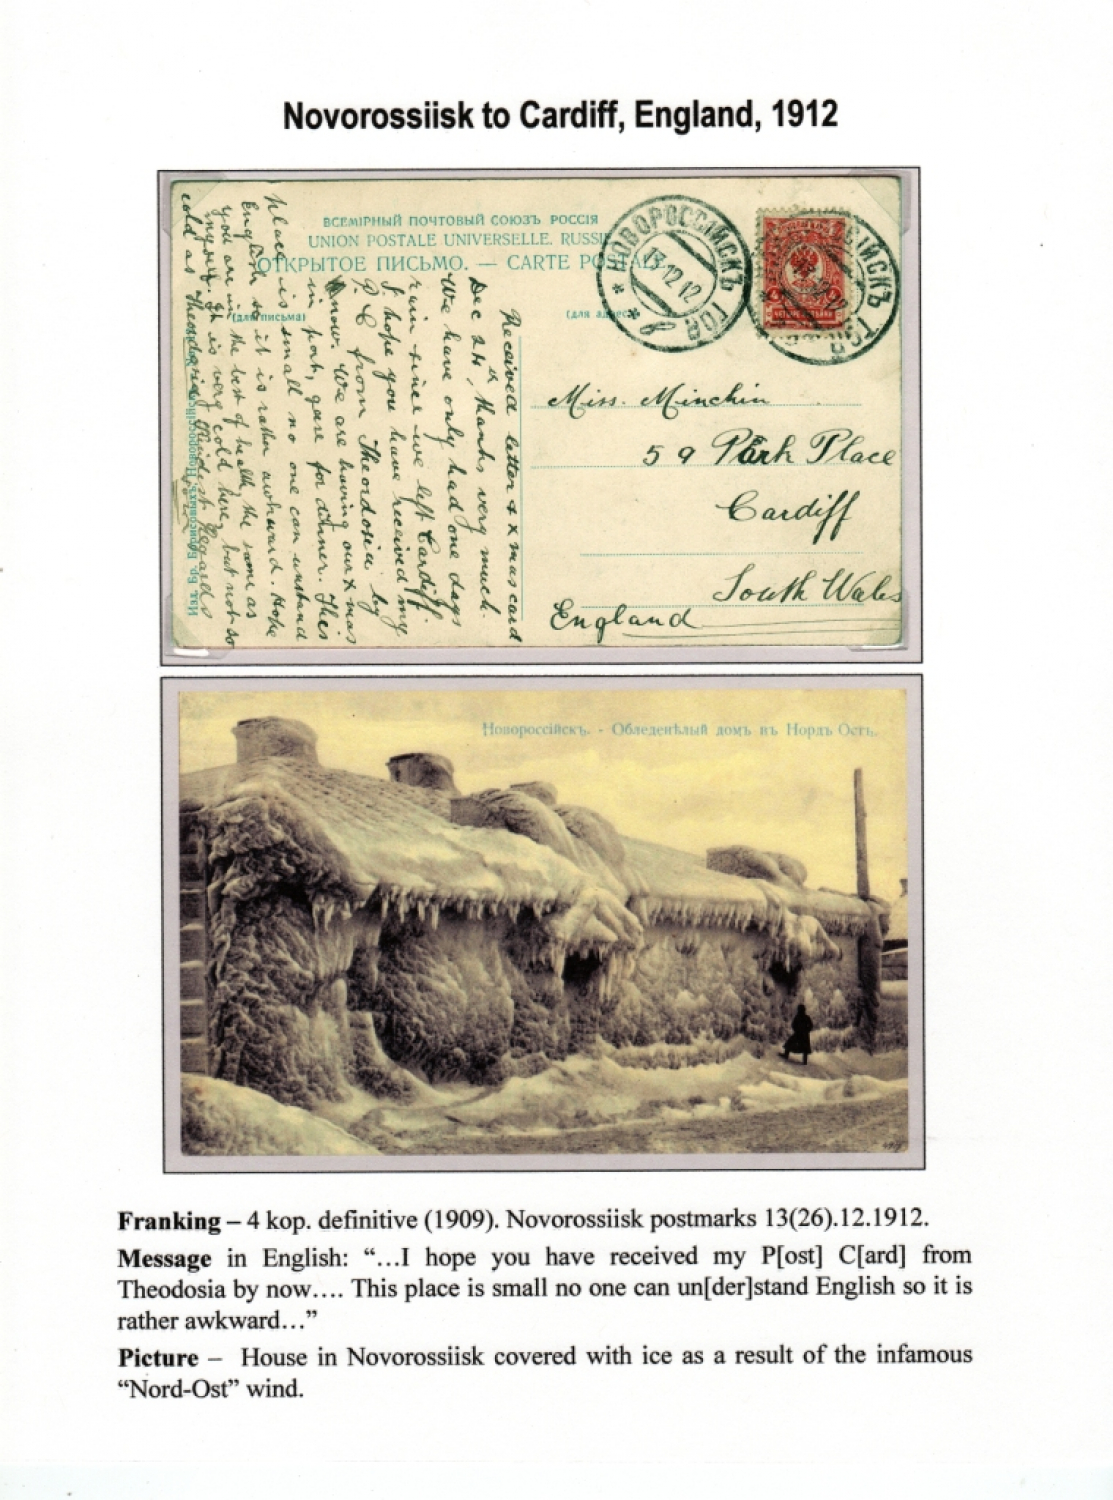 Novorossiisk to Cardiff, England, 1912
ВСЕМІРНЫЙ ПОЧТОВЫЙ СОЮЗЪ РОССІЯ
UNION POSTALE UNIVERSELLE. RUSSIE
ОТКРЫТОЕ ПИСЬМО. — CARTE POSTALE.
(для письма)
(для адреса)
НОВОРОССІЙСКЪ ГОР
13 12 12
СІЙСКЪ ГОР
Received letter & Xmas card
Dec 24, thanks very much.
We have only had one days
rain since we left Cardiff.
I hope you have received my
P.C from Theordosia by
now. We are having our Xmas
in port, gave for dinner. This
place is small no one can unstand
English so it is rather awkward. Hope
you are in the best of health, the same as
myself. It is very cold here, but not so
cold as Theordosia. Kindest Regards
Изд. Бр. Борисовыхъ, Новороссійскъ
Miss. Minchin
59 Park Place
Cardiff
South Wales
England
Новороссійскъ. - Обледенѣлый домъ въ Нордъ Остъ.
Franking – 4 kop. definitive (1909). Novorossiisk postmarks 13(26).12.1912.
Message in English: “…I hope you have received my P[ost] C[ard] from
Theodosia by now…. This place is small no one can un[der]stand English so it is
rather awkward…”
Picture – House in Novorossiisk covered with ice as a result of the infamous
“Nord-Ost” wind.